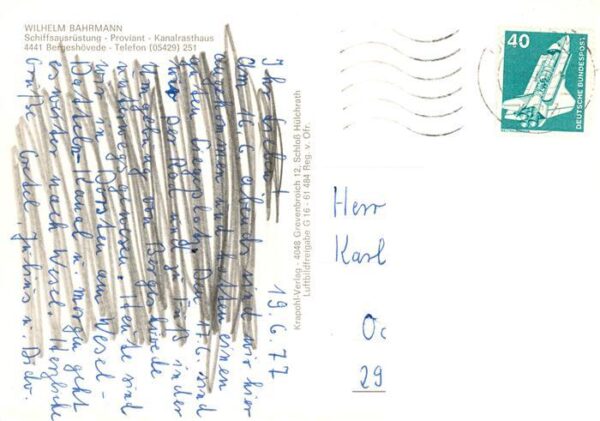 WILHELM BAHRMANN
Schiffsausrüstung - Proviant - Kanalrasthaus
4441 Bergeshövede - Telefon (05429) 251
19.6.77
Ihr Lieben!
Am 16. abends sind wir hier
angekommen und hatten einen
guten Liegeplatz. Den 17.6. sind
wir per Rad und zu Fuß in der
Umgebung von Bergeshövede
unterwegs gewesen. Heute sind
wir in Dorsten am Wesel-
Datteln-Kanal u. morgen geht
es weiter nach Wesel. Herzliche
Grüße u.
Krapohl-Verlag - 4048 Grevenbroich 12, Schloß Hülchrath
Luftbildfreigabe G 16 - 61 484 Reg. v. Ofr.
40
DEUTSCHE BUNDESPOST
Herr
Karl
Oc
29